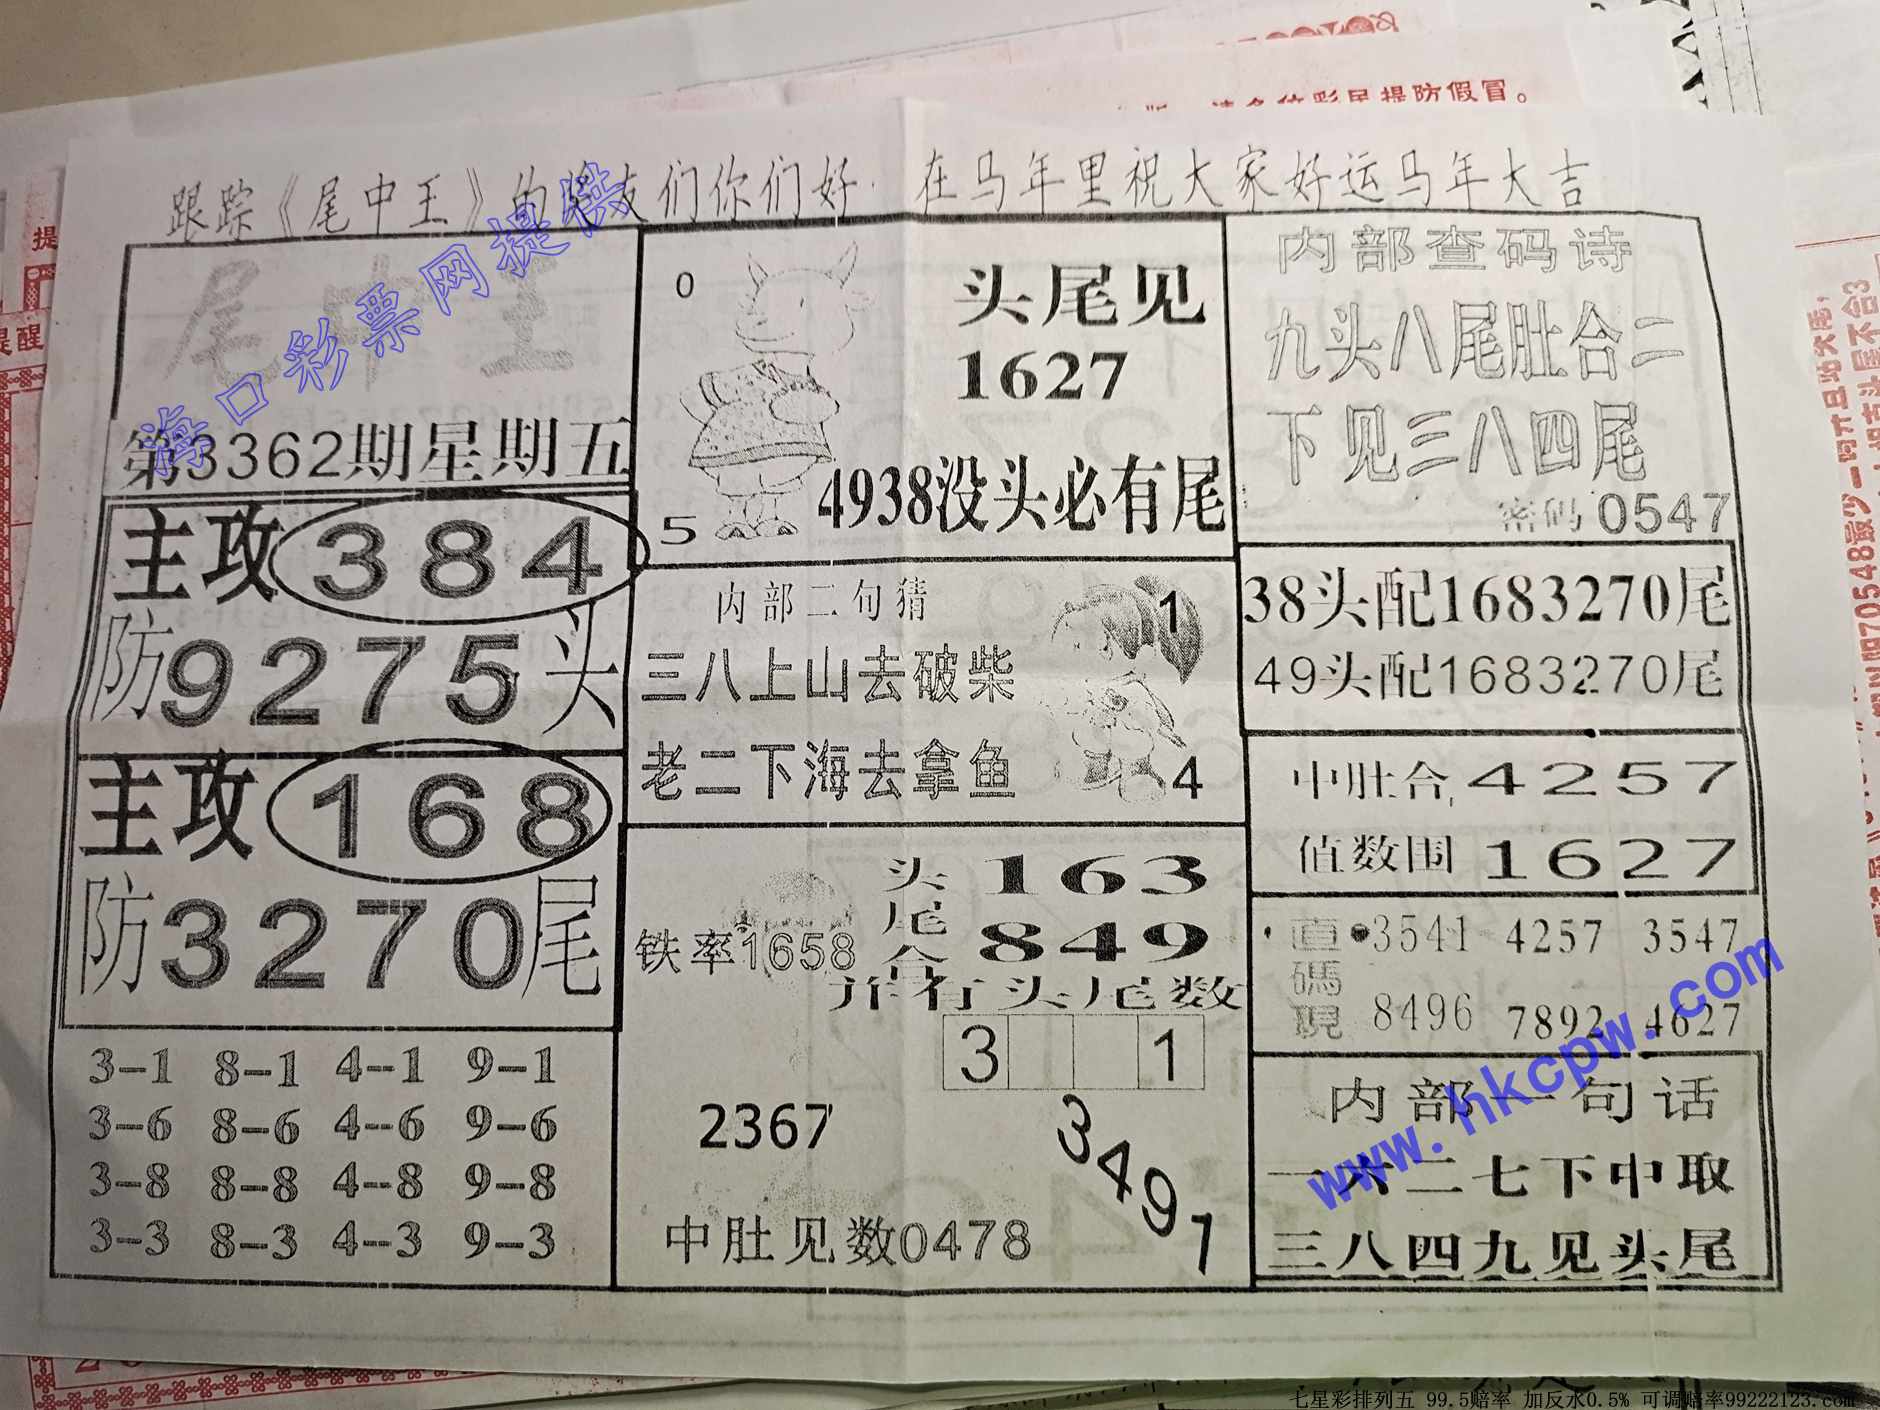 彩民提防假冒。
跟踪《尾中王》的朋友们你们好 在马年里祝大家好运马年大吉
尾中王
海口彩票网提供
第3362期星期五
主攻384
防9275头
主攻168
防3270尾
3-1 8-1 4-1 9-1
3-6 8-6 4-6 9-6
3-8 8-8 4-8 9-8
3-3 8-3 4-3 9-3
0
头尾见
1627
5
4938没头必有尾
内部二句猜
1
三八上山去破柴
老二下海去拿鱼
4
头尾合
163
849
铁率1658
并有头尾数
3 1
2367
3491
中肚见数0478
内部查码诗
九头八尾肚合二
下见三八四尾
密码0547
38头配1683270尾
49头配1683270尾
中肚合4257
值数围1627
直碼現
3541 4257 3547
8496 7892 4627
内部一句话
一六二七下中取
三八四九见头尾
www.hkcpw.com
七星彩排列五 99.5赔率 加反水0.5% 可调赔率99222123.com